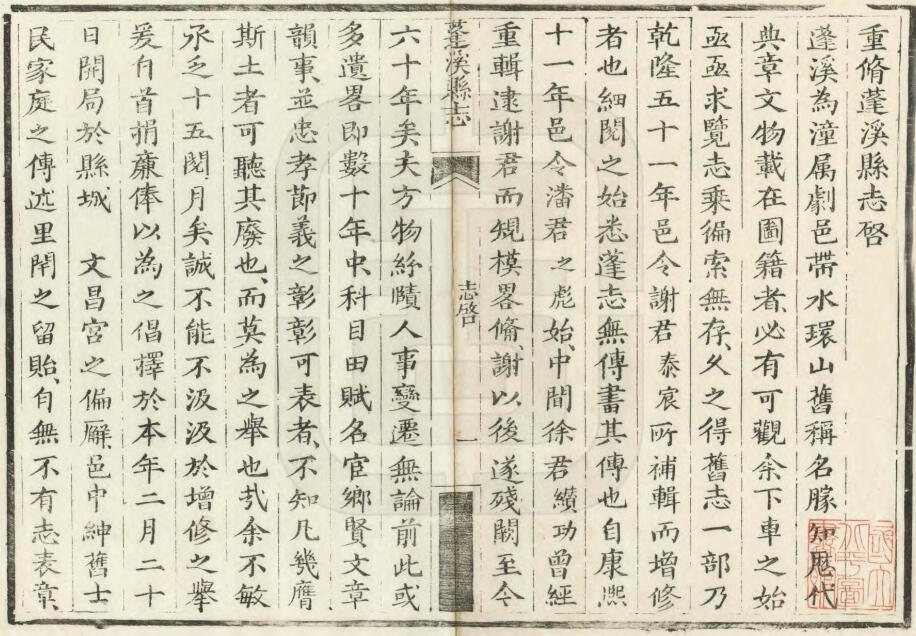 重脩蓬溪縣志啓
蓬溪為潼属劇邑帶水環山舊稱名勝知歷代
典章文物載在圖籍者必有可觀余下車之始
亟亟求覽志乗徧索無存久之得舊志一部乃
乾隆五十一年邑令謝君泰宸所補輯而增修
者也細閱之始悉蓬志無傳書其傳也自康熙
十一年邑令潘君之彪始中間徐君纘功曾經
重輯逮謝君而規模畧脩謝以後遂殘闕至今
蓬溪縣志
志啓
一
六十年矣夫方物紛賾人事變遷無論前此或
多遺畧即數十年中科目田賦名宦鄉賢文章
韻事並忠孝節義之彰彰可表者不知凡幾膺
斯土者可聽其廢也而莫為之舉也㢤余不敏
承乏十五閱月矣誠不能不汲汲於增修之舉
爰自首捐廉俸以為之倡擇於本年二月二十
日開局於縣城　文昌宮之偏廨邑中紳舊士
民家庭之傳述里閈之留貽自無不有志表章